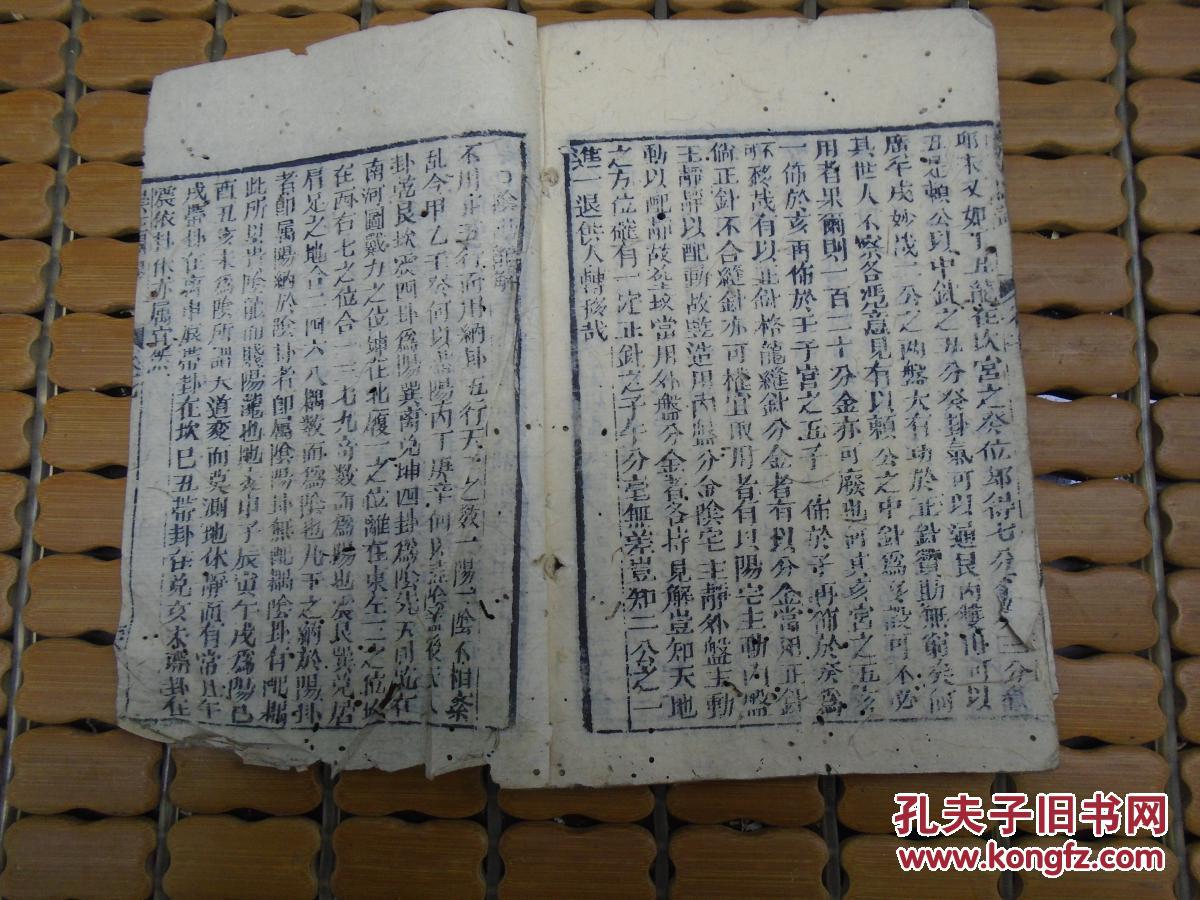 丑是賴公以中針之五分癸卦氣可以通艮內雙山可以
廣平戌妙戌二公之兩盤大有功於正針贊助無窮矣何
其世人不察各凭意見有以賴公之中針爲虛設可不必
用者果爾則一百二十分金亦可廢也何其亥宮之五亥
一佈於亥再佈於壬子宮之五子一佈於子再佈於癸爲
不移哉有以正針格龍縫針分金者有以分金當用正針
倘正針不合縫針亦可權宜取用者有以陽宅主動內盤
主靜靜以配動故竪造用內盤分金陰宅主靜外盤主動
動以配靜故塟墳當用外盤分金者各持見解豈知天地
之方位確有一定正針之子午分毫無差豈知二公之一
進一退供人轉移哉
不用正五行而用納卦五行天之數一陽一陰不相紊
乱今甲乙壬癸何以爲陽丙丁庚辛何以爲陰盖後天八
卦乾艮坎震四卦爲陽巽离兌坤四卦爲陰先天則乾在
南河圖戴九之位坤在北履一之位離在東左三之位坎
在西右七之位合一三七九竒數而爲陽也震艮巽兌居
肩足之地合二四六八耦數而爲陰也凡干之納於陽卦
者卽属陽納於陰卦者卽属陰陽卦無配耦陰卦有配耦
此所以貴陰龍而賤陽龍也地支申子辰寅午戌爲陽巳
酉丑亥未爲陰所謂天道変而莫測地休靜而有常且午
戌帶卦在离申辰帶卦在坎巳丑帶卦在兌亥未帶卦在
震依卦休亦属宜然
孔夫子旧书网
www.kongfz.com